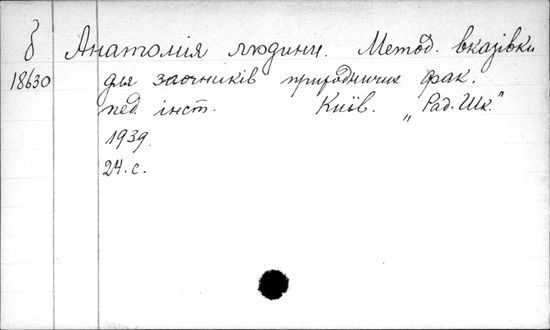 б Анатомія людини. Метод. вказівки
18630 для заочників природничих фак.
пед. інст. Київ. „Рад. Шк."
1939.
24. с.